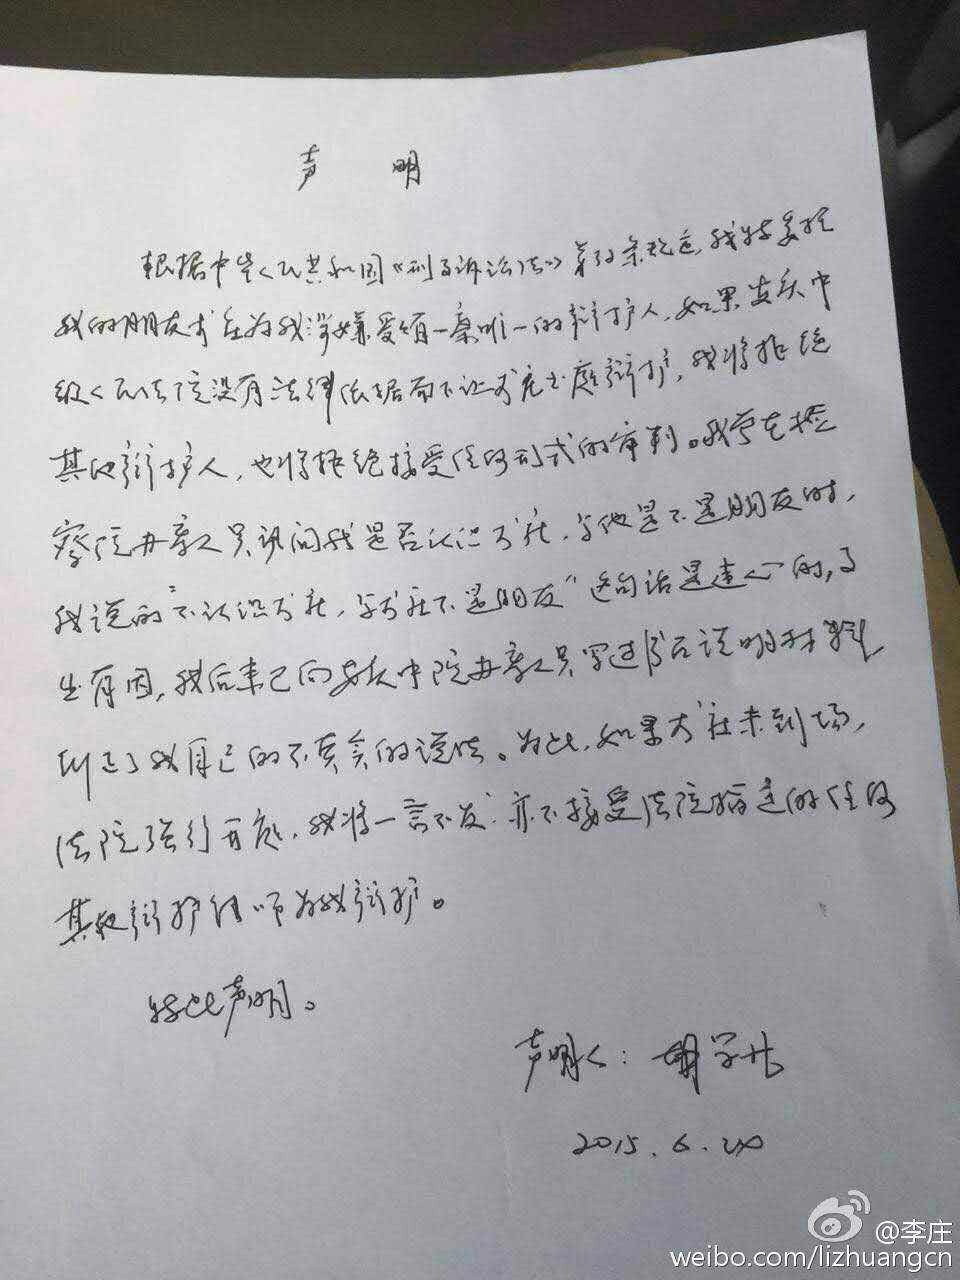 声 明
根据中华人民共和国《刑事诉讼法》第32条规定,我特委托
我的朋友李庄为我涉嫌受贿一案唯一的辩护人,如果安庆中
级人民法院没有法律依据而不让李庄出庭辩护,我将拒绝
其他辩护人,也将拒绝接受任何形式的审判。我曾在检
察院办案人员讯问我是否认识李庄,与他是不是朋友时,
我说的“不认识李庄,与李庄不是朋友”这句话是违心的,事
出有因,我后来已向安庆中院办案人员写过书面说明材料,
纠正了我自己的不真实的说法。为此,如果李庄未到场,
法院强行开庭,我将一言不发,亦不接受法院指定的任何
其他辩护律师为我辩护。
特此声明。
声明人:
2015.6.
@李庄
weibo.com/lizhuangcn